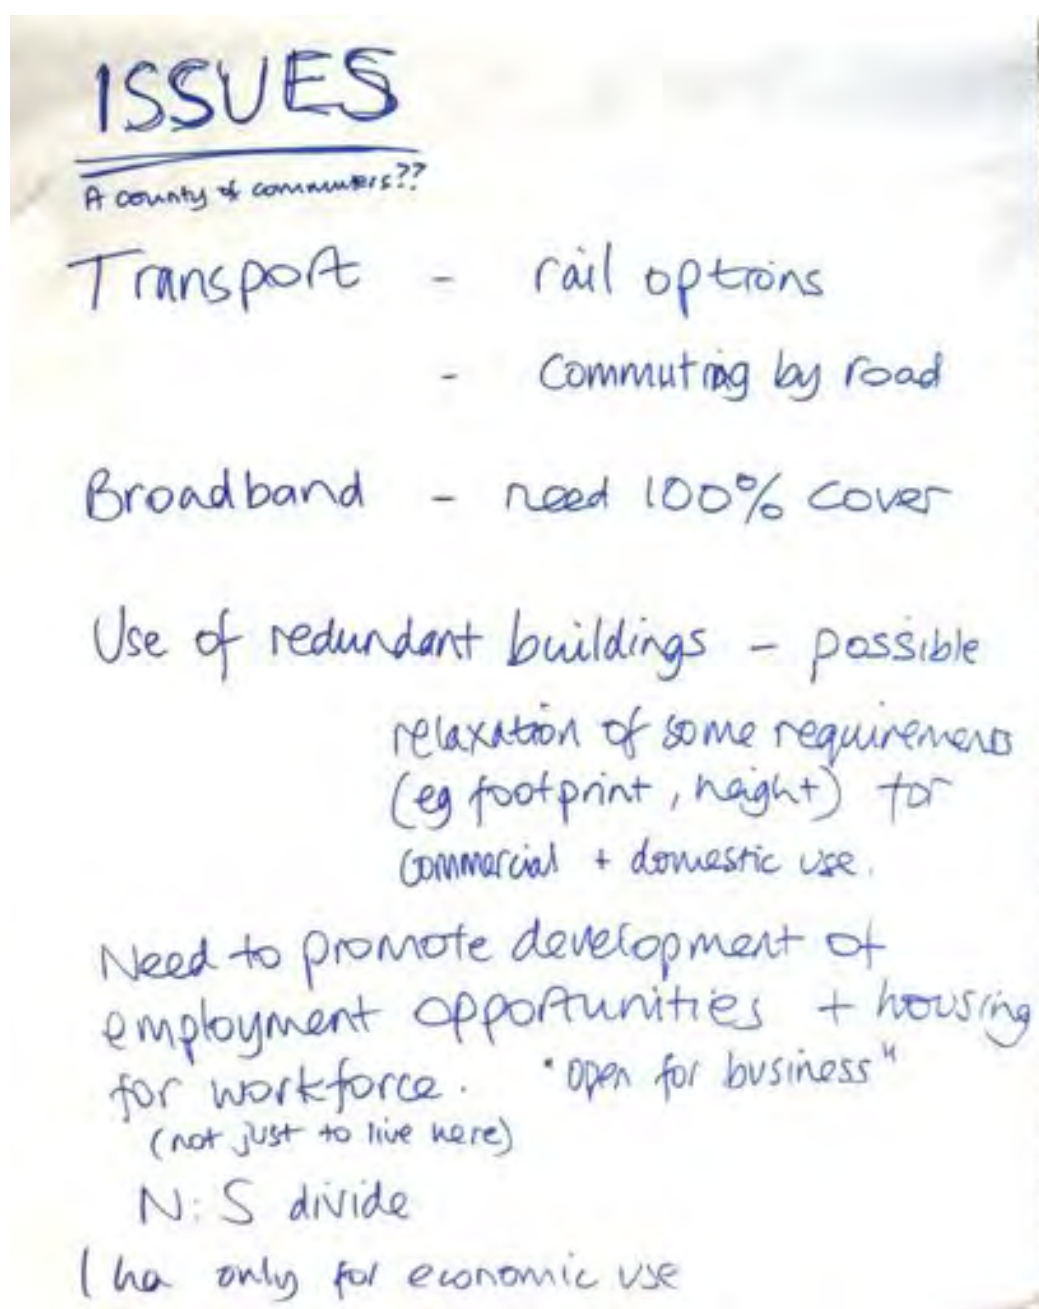 ISSUES
A county of commuters??
Transport - rail options
- Commuting by road
Broadband - need 100% cover
Use of redundant buildings - possible
relaxation of some requirements
(eg footprint, height) for
commercial + domestic use.
Need to promote development of
employment opportunities + housing
for workforce. "open for business"
(not just to live here)
N:S divide
1 ha only for economic use